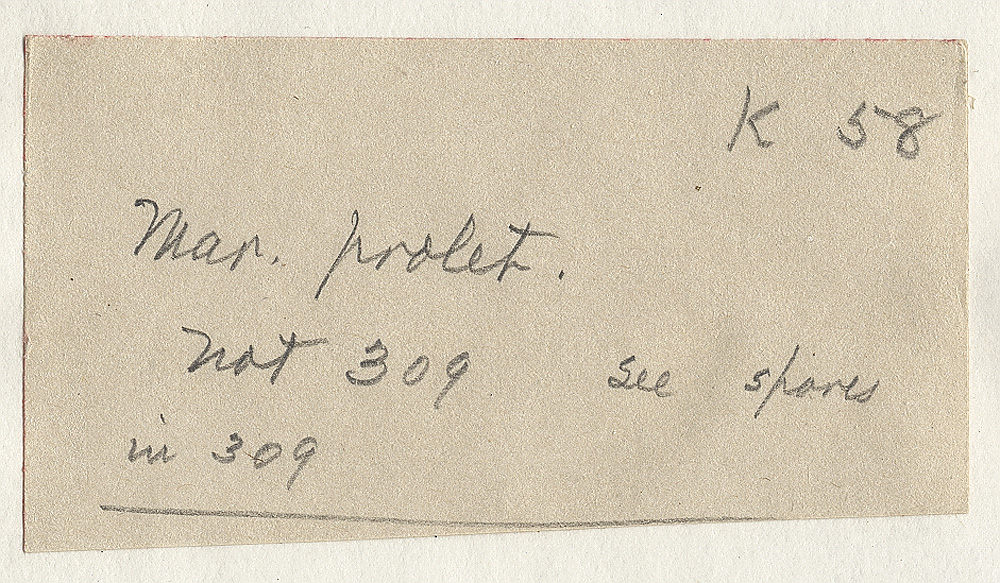 K 58
Mar. prolet.
Not 309 see spores
in 309